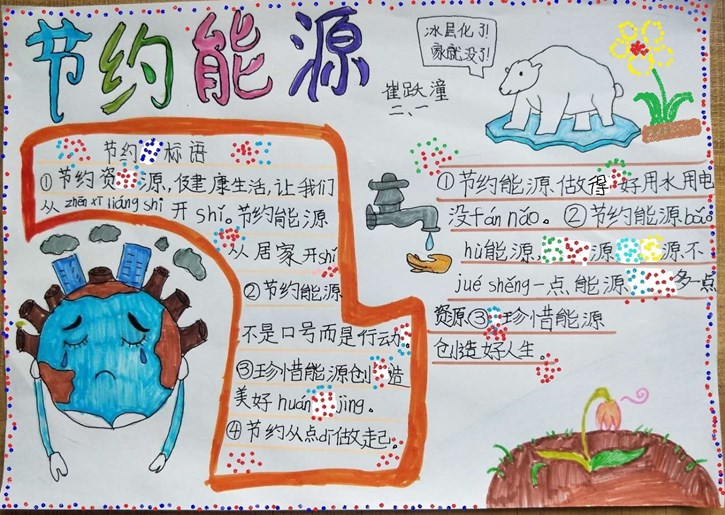 节约能源
冰局化了!
家就没了!
崔跃潼
二、一
节约 标语
①节约资源,健康生活,让我们
从zhēn xī liáng shi开shǐ。节约能源
从居家开shǐ
②节约能源
不是口号而是行动。
③珍惜能源创造
美好huán jìng。
④节约从点dī做起。
①节约能源做得好用水用电
没fán nǎo。②节约能源bǎo
hù能源, 源 源不
jué shěng一点能源 多一点
资源③珍惜能源
创造好人生。